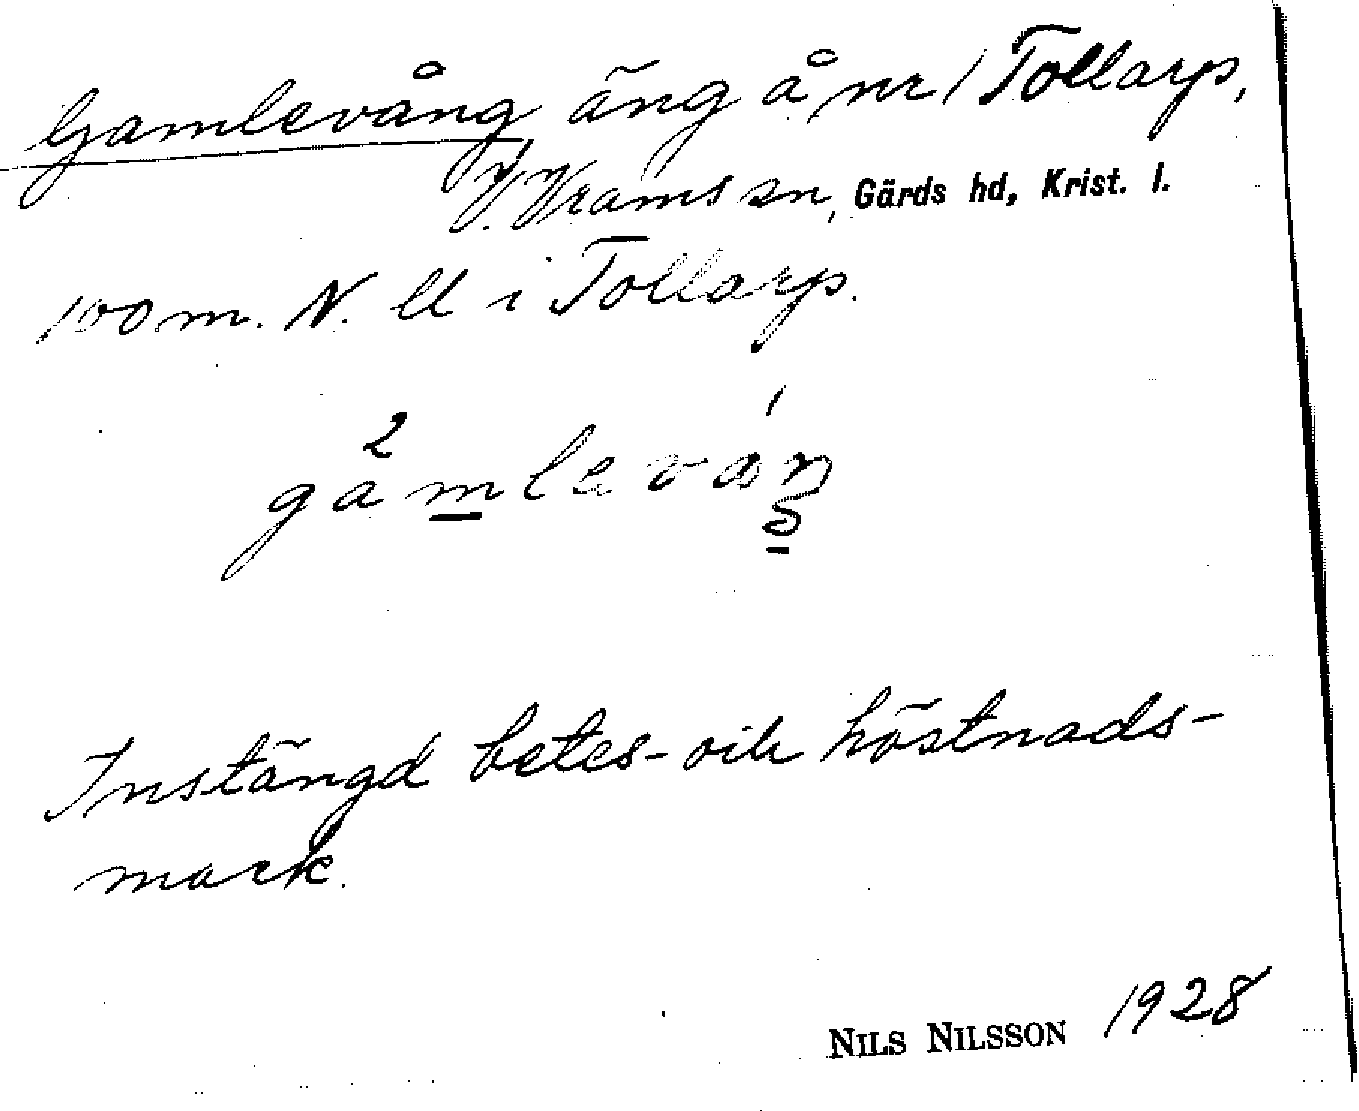 Gamlevång äng å nr 1 Tollarp,
V. Vrams sn, Gärds hd, Krist. l.
100 m. N. ll i Tollarp.
2 1
gamlevaŋ
Instängd betes- och höstnads-
mark.
NILS NILSSON 1928